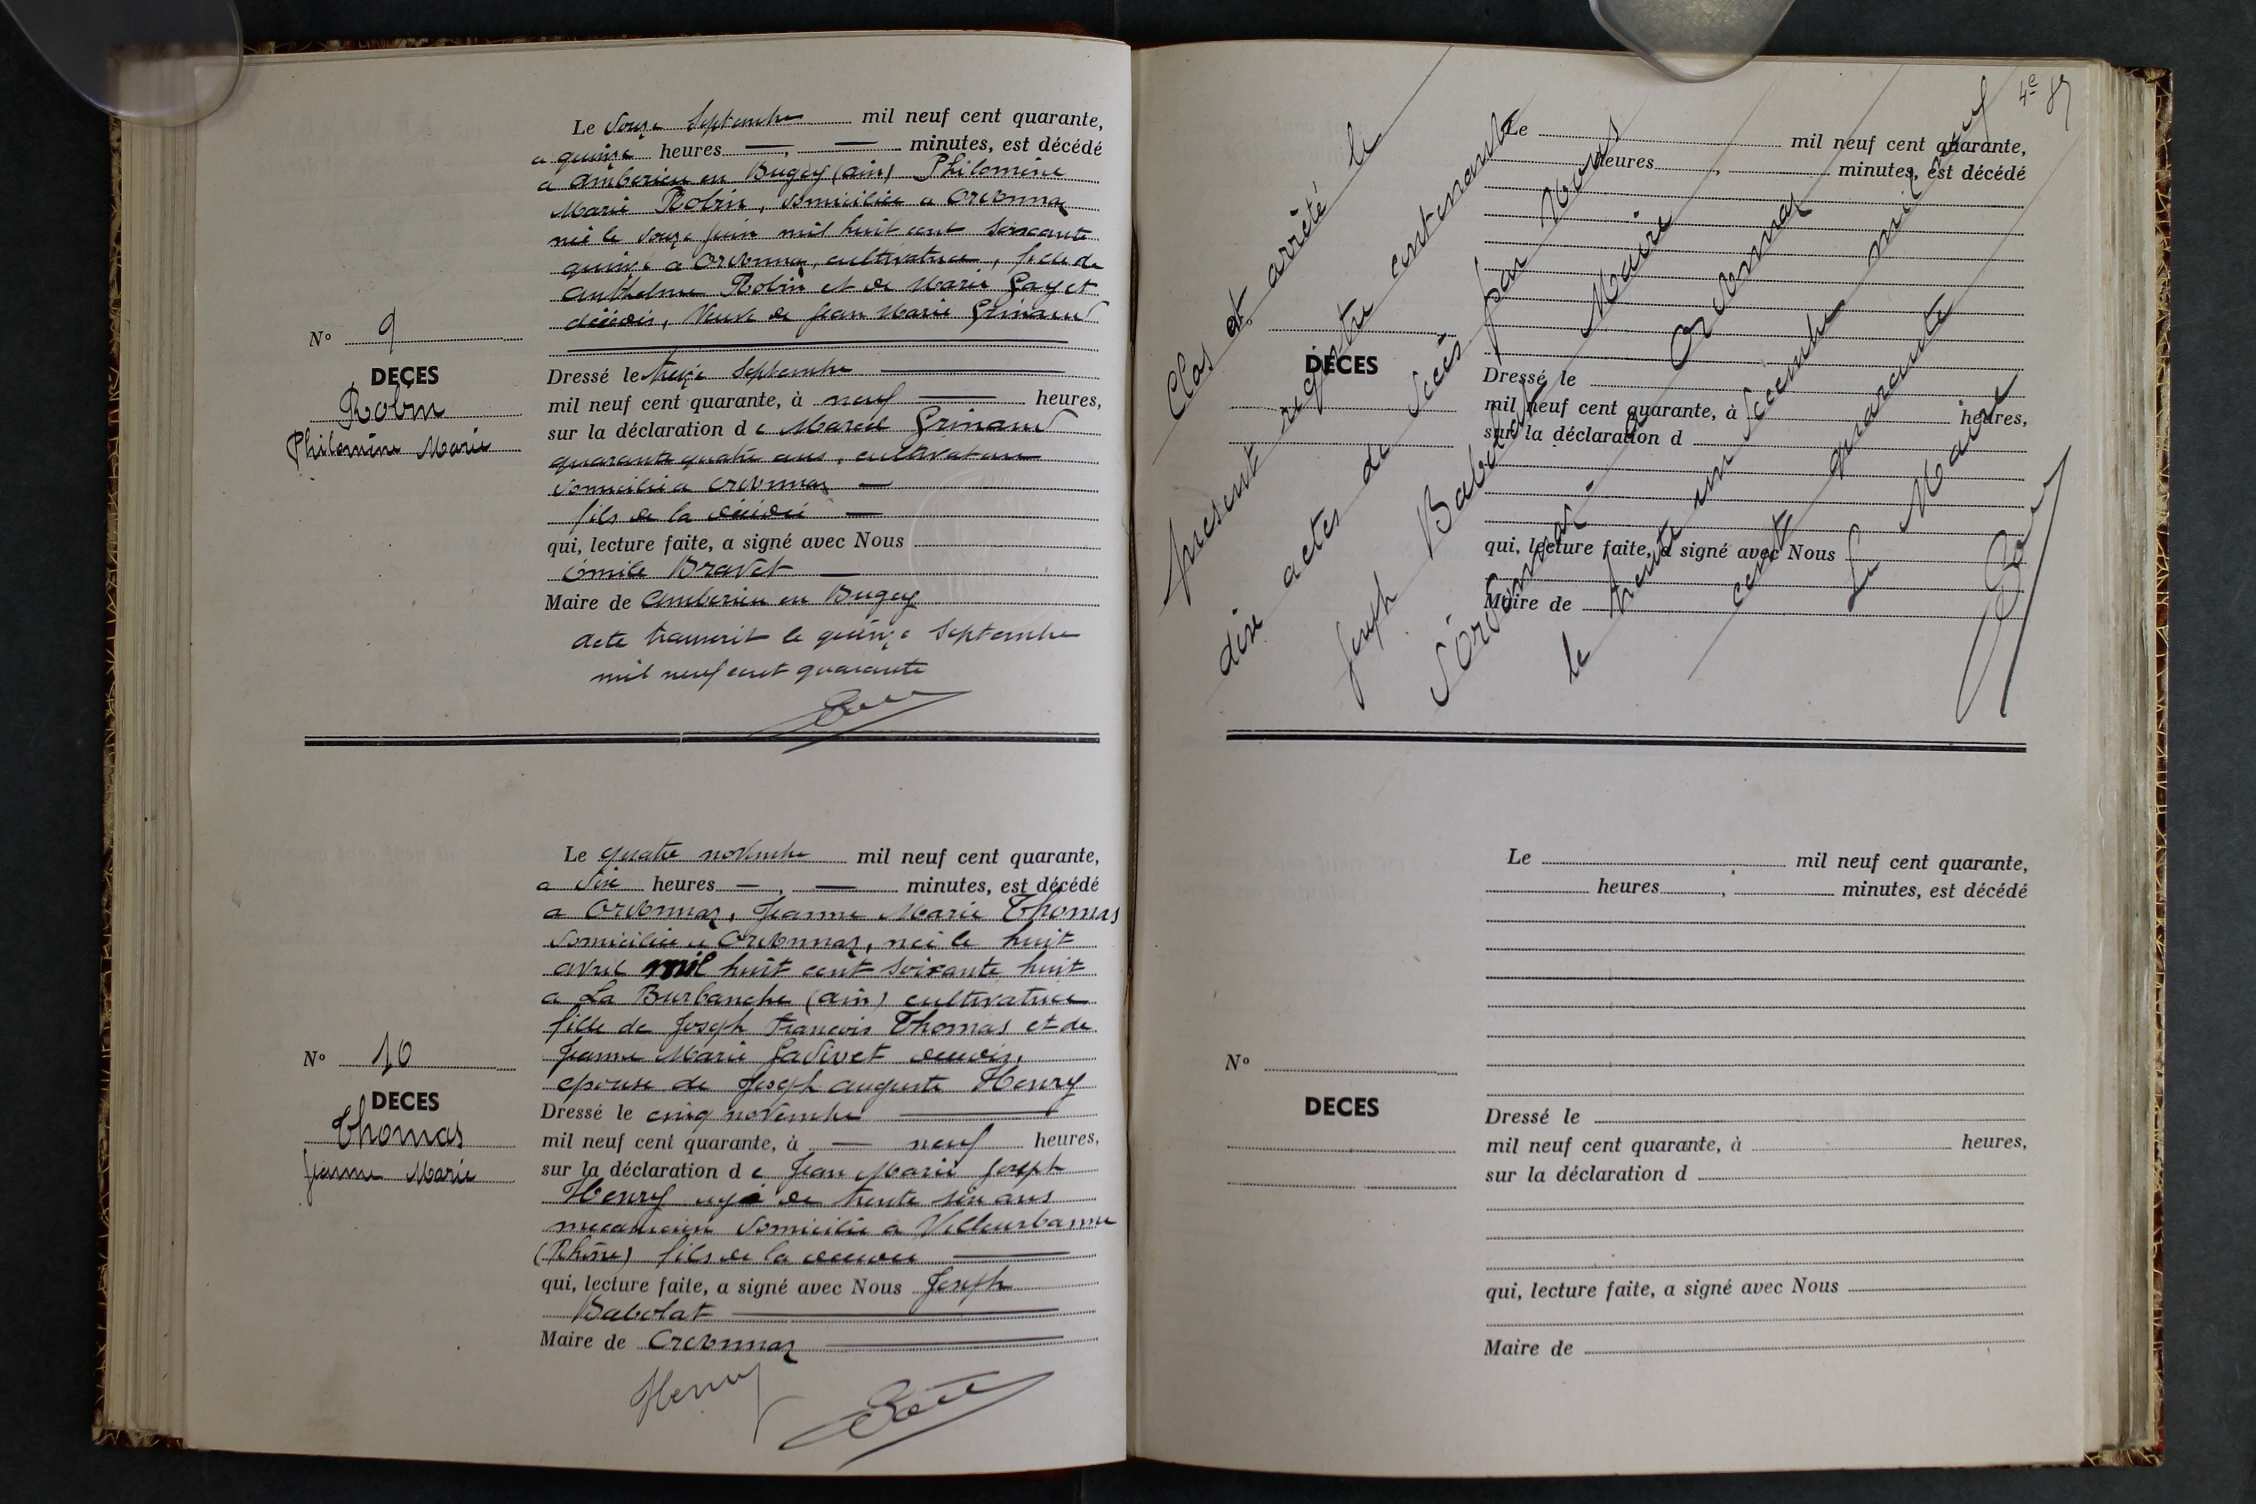 Le douze Septembre mil neuf cent quarante,
a quinze heures —, — minutes, est décédé
a Amberieu en Bugey (Ain) Philomène
Marie Robin, domiciliée a Ordonnaz
née le douze juin mil huit cent soixante
quinze a Ordonnaz, cultivatrice, fille de
Anthelme Robin et de Marie Gayet
décédés, Veuve de Jean Marie Grinand
N° 9
DECES
Robin
Philomène Marie
Dressé le treize Septembre
mil neuf cent quarante, à neuf — heures,
sur la déclaration de Marcel Grinand
quarante quatre ans, cultivateur
domicilié a Ordonnaz —
fils de la décédée —
qui, lecture faite, a signé avec Nous
Émile Bravet —
Maire de Amberieu en Bugey
Acte transcrit le quinze Septembre
mil neuf cent quarante
Le quatre novembre mil neuf cent quarante,
a dix heures —, — minutes, est décédé
a Ordonnaz, Jeanne Marie Thomas
domiciliée a Ordonnaz, née le huit
avril mil huit cent soixante huit
a La Burbanche (Ain) cultivatrice
fille de Joseph François Thomas et de
Jeanne Marie Gadivet décédés,
épouse de Joseph Auguste Henry
N° 10
DECES
Thomas
Jeanne Marie
Dressé le cinq novembre
mil neuf cent quarante, à — neuf heures,
sur la déclaration de Jean Marie Joseph
Henry agé de trente six ans
mecanicien domicilié a Villeurbanne
(Rhône) fils de la décédée
qui, lecture faite, a signé avec Nous Joseph
Babolat
Maire de Ordonnaz
Henry
4e
Clos et arrêté le
present registre contenant
dix actes de décès par Nous
Joseph Babolat Maire
d'Ordonnaz - a Ordonnaz
le trente un décembre mil neuf
cent quarante
Le Maire
Le mil neuf cent quarante,
heures , minutes, est décédé
DECES
Dressé le
mil neuf cent quarante, à heures,
sur la déclaration d
qui, lecture faite, a signé avec Nous
Maire de
Le mil neuf cent quarante,
heures , minutes, est décédé
N°
DECES
Dressé le
mil neuf cent quarante, à heures,
sur la déclaration d
qui, lecture faite, a signé avec Nous
Maire de